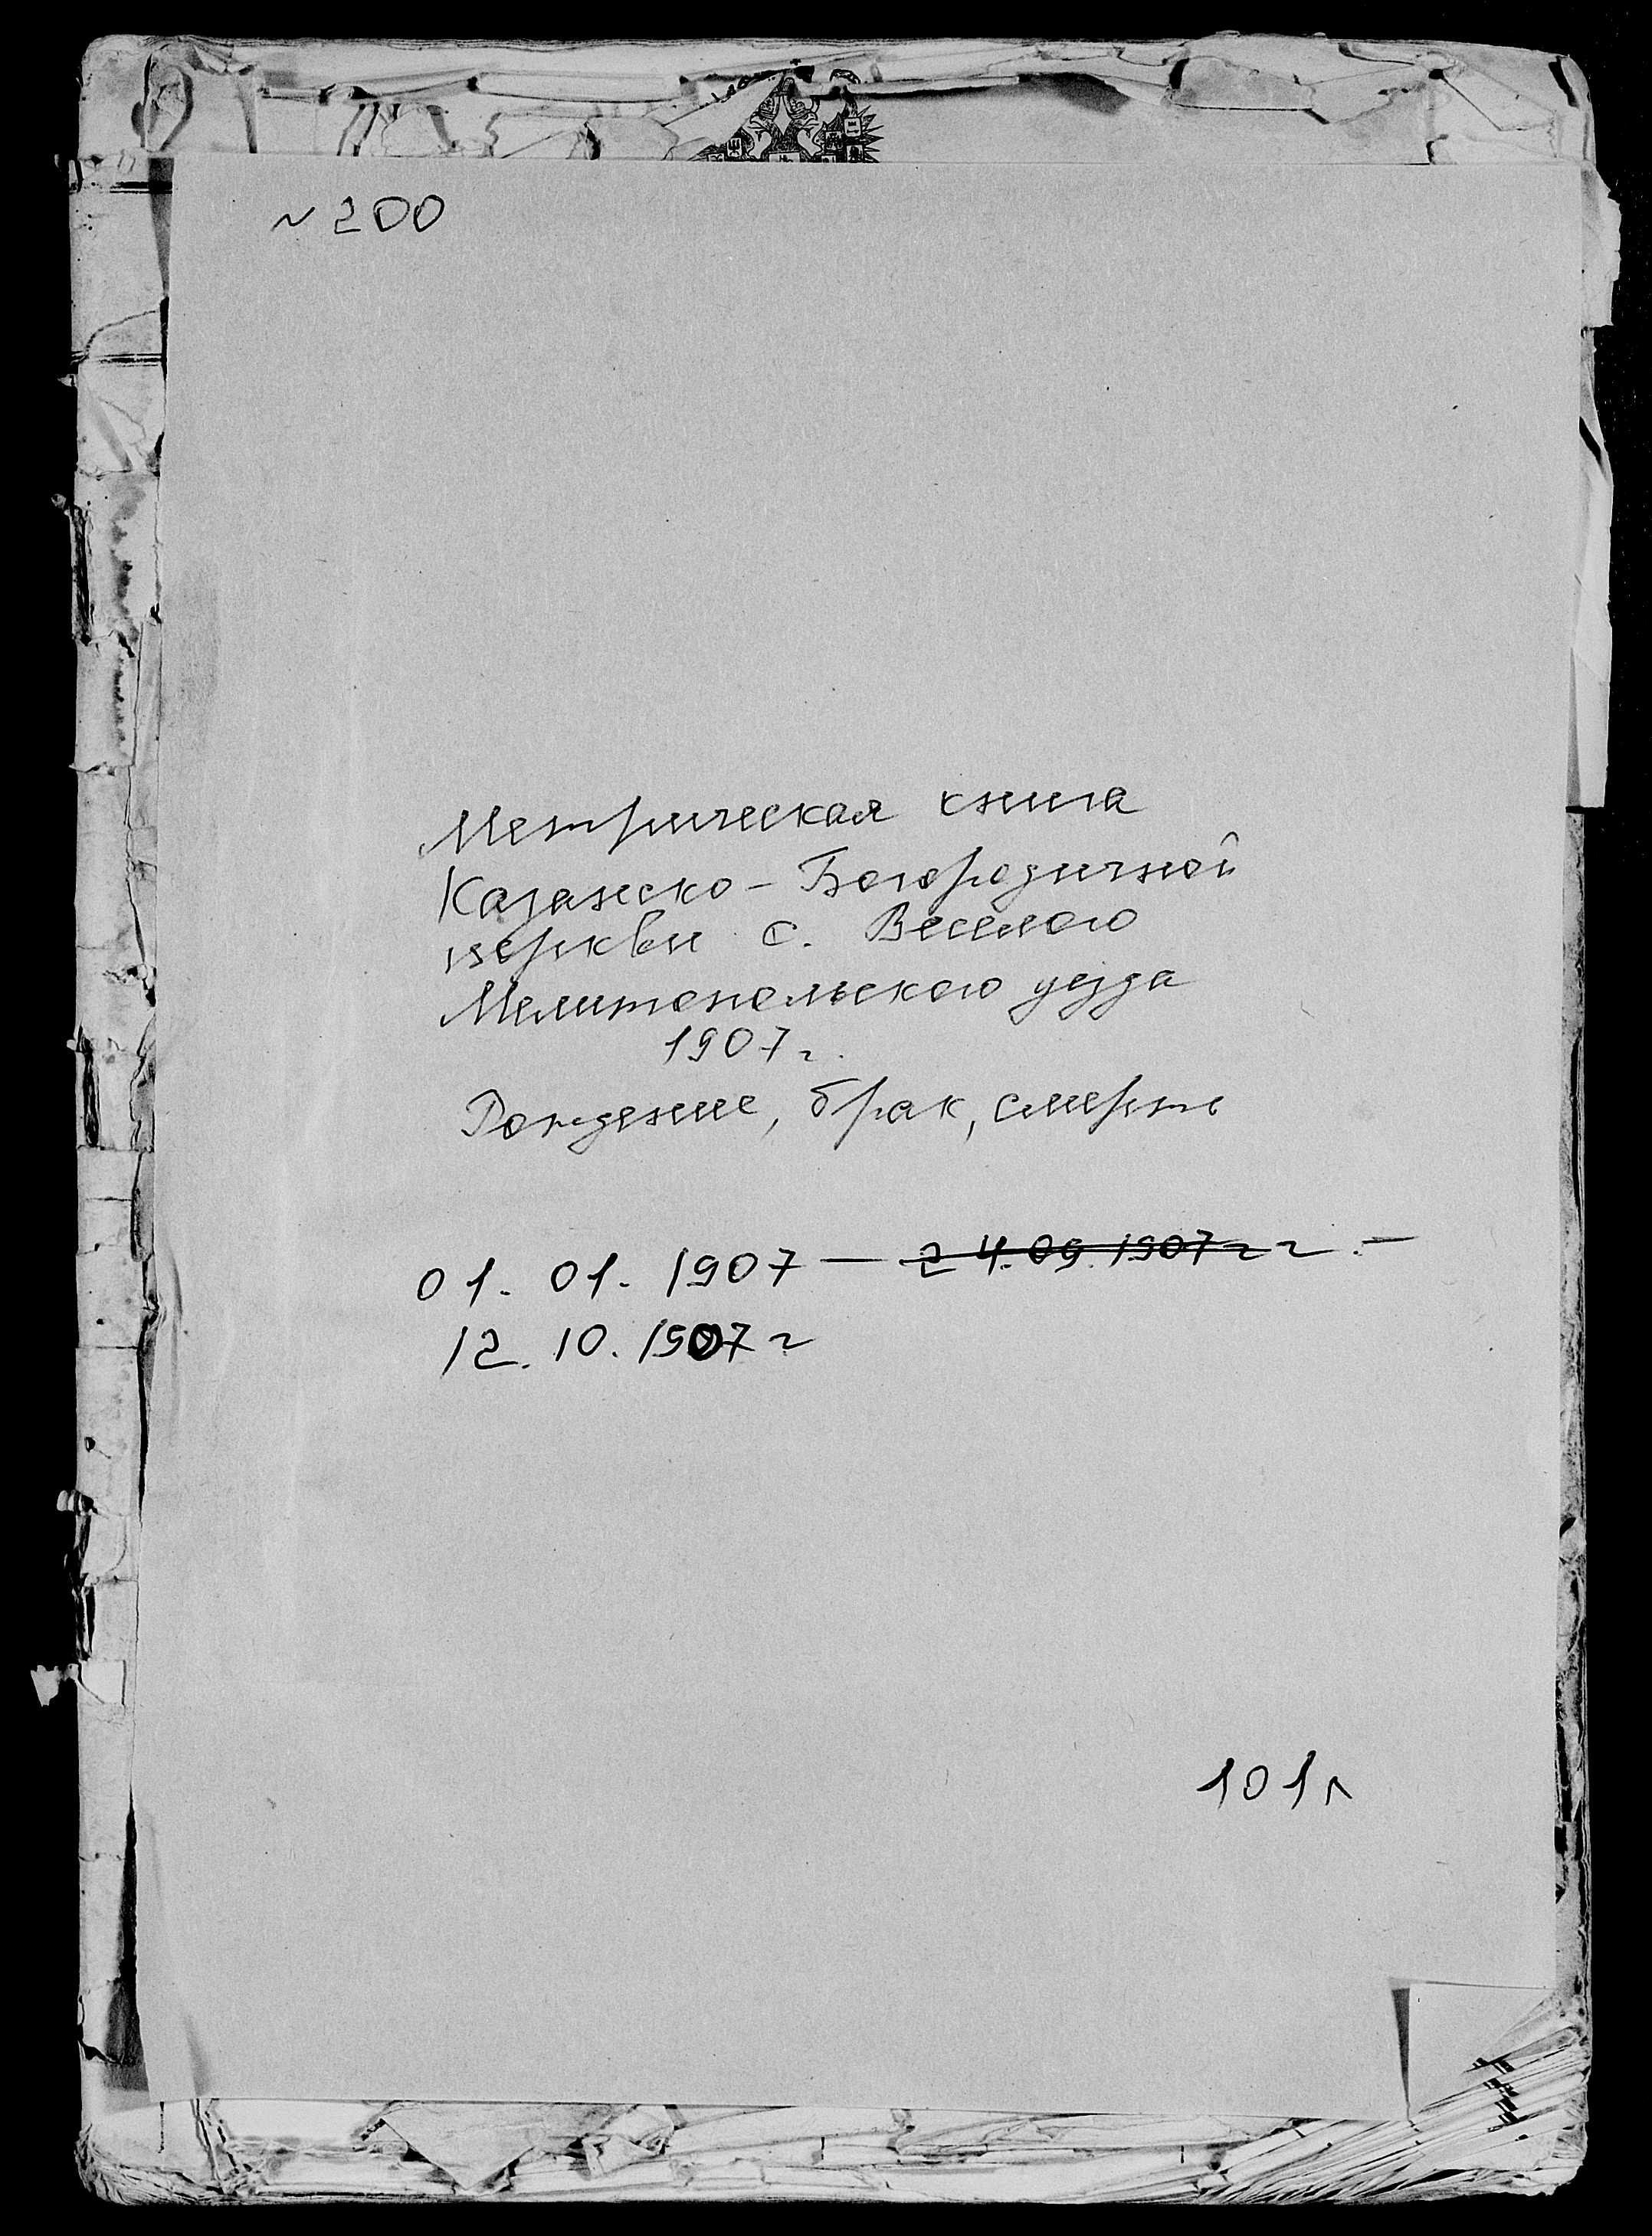 N 200
Метрическая книга
Казанско-Богородичной
церкви с. Веселого
Мелитопольского уезда
1907 г.
Рождение, брак, смерть
01. 01. 1907 — 24.09.1907 г г. —
12. 10. 1907 г
101 л